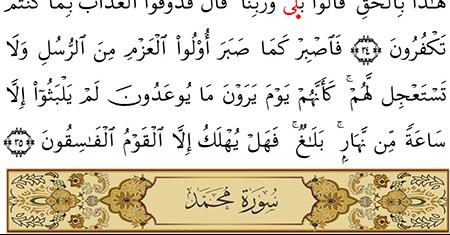 هَـٰذَا بِالْحَقِّ ۖ قَالُوا۟ بَلَىٰ وَرَبِّنَا ۚ قَالَ فَذُوقُوا۟ الْعَذَابَ بِمَا كُنتُمْ
تَكْفُرُونَ ﴿٣٤﴾ فَٱصْبِرْ كَمَا صَبَرَ أُو۟لُوا۟ ٱلْعَزْمِ مِنَ ٱلرُّسُلِ وَلَا
تَسْتَعْجِل لَّهُمْ ۚ كَأَنَّهُمْ يَوْمَ يَرَوْنَ مَا يُوعَدُونَ لَمْ يَلْبَثُوٓا۟ إِلَّا
سَاعَةً مِّن نَّهَارٍۭ ۚ بَلَـٰغٌ ۚ فَهَلْ يُهْلَكُ إِلَّا ٱلْقَوْمُ ٱلْفَـٰسِقُونَ ﴿٣٥﴾
سُورَةُ مُحَمَّد